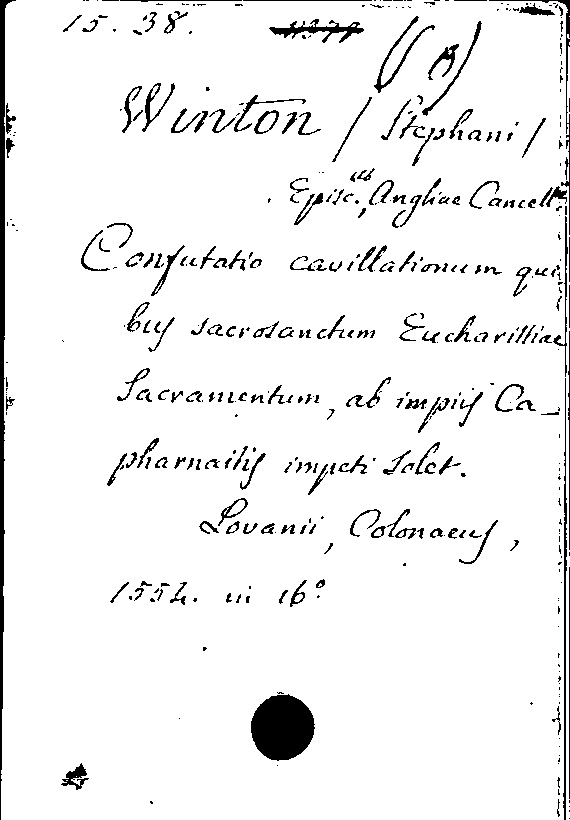 15. 38.
(B)
Winton / Stephani /
Episc. us, Angliae Cancell.
Confutatio cavillationum qui
bus sacrosanctum Eucharistiae
Sacramentum, ab impiis Ca_
pharnaitis impeti solet.
Lovanii, Colonaeus,
1554. in 16°